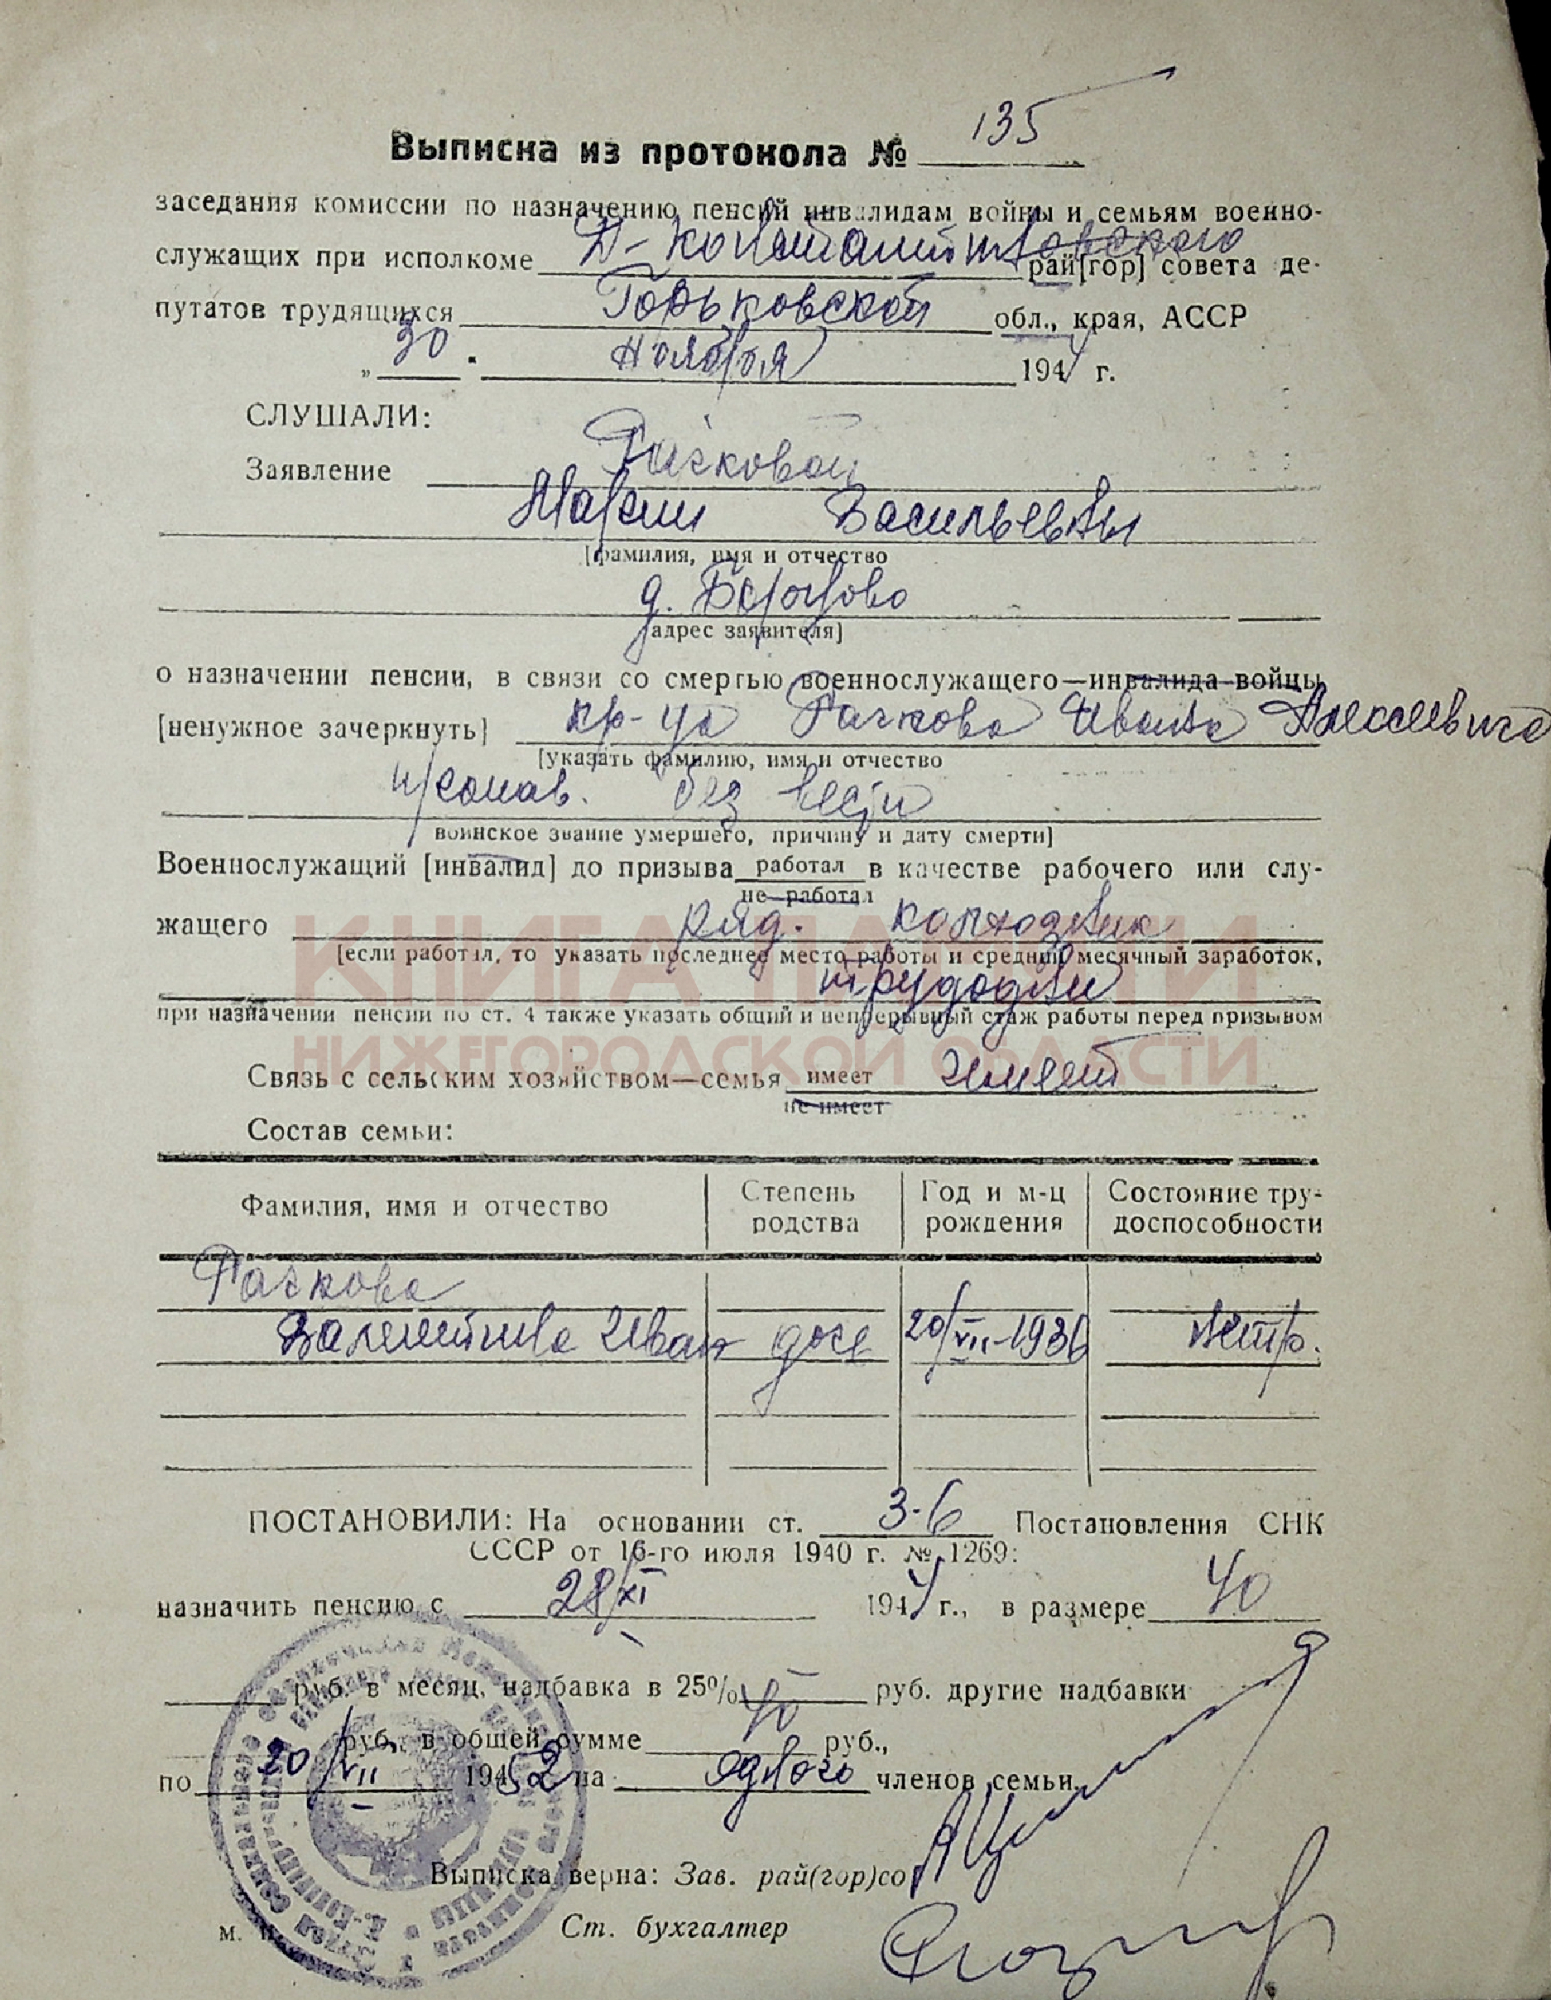 Выписка из протокола № 135
заседания комиссии по назначению пенсий инвалидам войны и семьям военно-
служащих при исполкоме Д-Константиновского рай[гор] совета де-
путатов трудящихся Горьковской обл., края, АССР
„30" ноября 1944 г.
СЛУШАЛИ:
Заявление Рачковой
Марии Васильевны
[фамилия, имя и отчество
д.
адрес заявителя]
о назначении пенсии, в связи со смертью военнослужащего—инвалида войны
[ненужное зачеркнуть] кр-ца Рачкова Ивана Алексеевича
[указать фамилию, имя и отчество
без вести
воинское звание умершего, причину и дату смерти]
Военнослужащий [инвалид] до призыва работал в качестве рабочего или слу-
не работал
жащего ряд. колхозник
[если работал, то указать последнее место работы и средний месячный заработок,
трудодни
при назначении пенсии по ст. 4 также указать общий и непрерывный стаж работы перед призывом
КНИГА ПАМЯТИ
НИЖЕГОРОДСКОЙ ОБЛАСТИ
Связь с сельским хозяйством—семья имеет имеет
не имеет
Состав семьи:
Фамилия, имя и отчество Степень родства Год и м-ц рождения Состояние тру-доспособности
Рачкова
Валентина Иван дочь 20/VII-1936 нетр.
ПОСТАНОВИЛИ: На основании ст. 3-б Постановления СНК
СССР от 16-го июля 1940 г. № 1269:
назначить пенсию с 28/XI 1944 г., в размере 40
руб. в месяц, надбавка в 25% руб. другие надбавки
руб., в общей сумме 40 руб.,
по 20/VII 1952 на одного членов семьи.
Выписка верна: Зав. рай(гор)со
м. п. Ст. бухгалтер